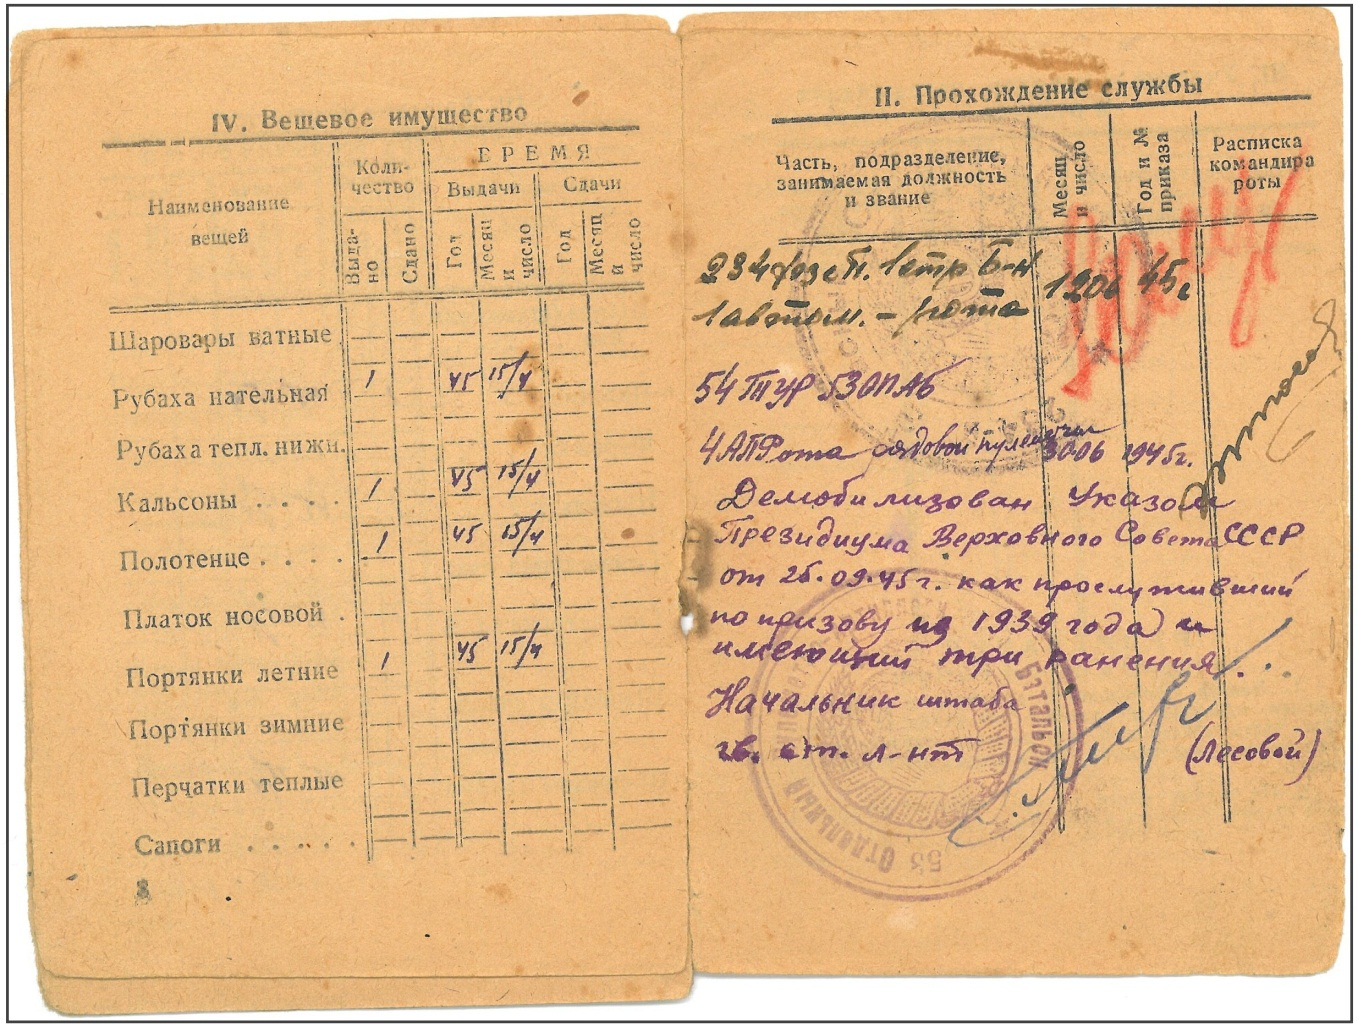 IV. Вещевое имущество
Наименование вещей
Коли-
чество
ВРЕМЯ
Выдачи
Сдачи
Выда-
но
Сдано
Год
Месяц и число
Год
Месяц и число
Шаровары ватные
Рубаха нательная 1 45 15/4
Рубаха тепл. нижн.
Кальсоны . . . . 1 45 15/4
Полотенце . . . . 1 45 15/4
Платок носовой .
Портянки летние 1 45 15/4
Портянки зимние
Перчатки теплые
Сапоги . . . . .
8
II. Прохождение службы
Часть, подразделение,
занимаемая должность
и звание
Месяц
и число
Год и №
приказа
Расписка
командира
роты
234 п. 1 стр Б-н 1206 45г
1 автом. - рота
54 ТУР 53 ОПАБ
4 АПРота рядовой пулеметчик 3006 1945г.
Демобилизован Указом
Президиума Верховного Совета СССР
от 25.09.45г. как прослуживший
по призову из 1939 года и
имеющий три ранения.
Начальник штаба
гв. ст. л-нт (Лесовой)
53 Отдельный
Батальон